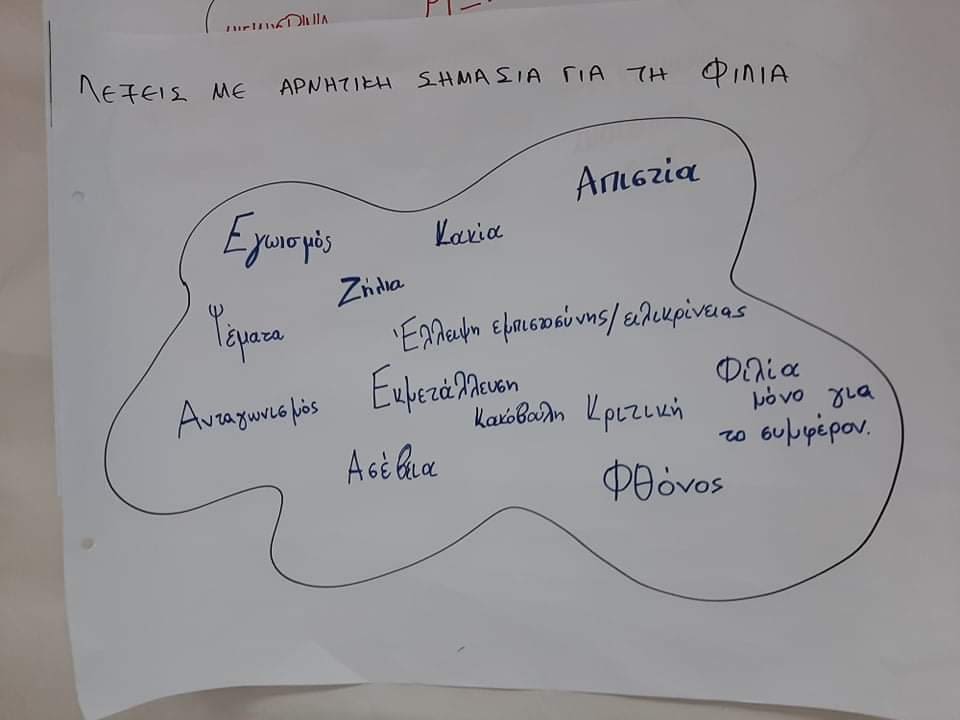 ΛΕΞΕΙΣ ΜΕ ΑΡΝΗΤΙΚΗ ΣΗΜΑΣΙΑ ΓΙΑ ΤΗ ΦΙΛΙΑ
Απιστία
Εγωισμός
Κακία
Ζήλια
Ψέματα
Έλλειψη εμπιστοσύνης/ειλικρίνειας
Φιλία
μόνο για
το συμφέρον.
Εκμετάλλευση
Ανταγωνισμός
κακόβουλη Κριτική
Ασέβεια
Φθόνος